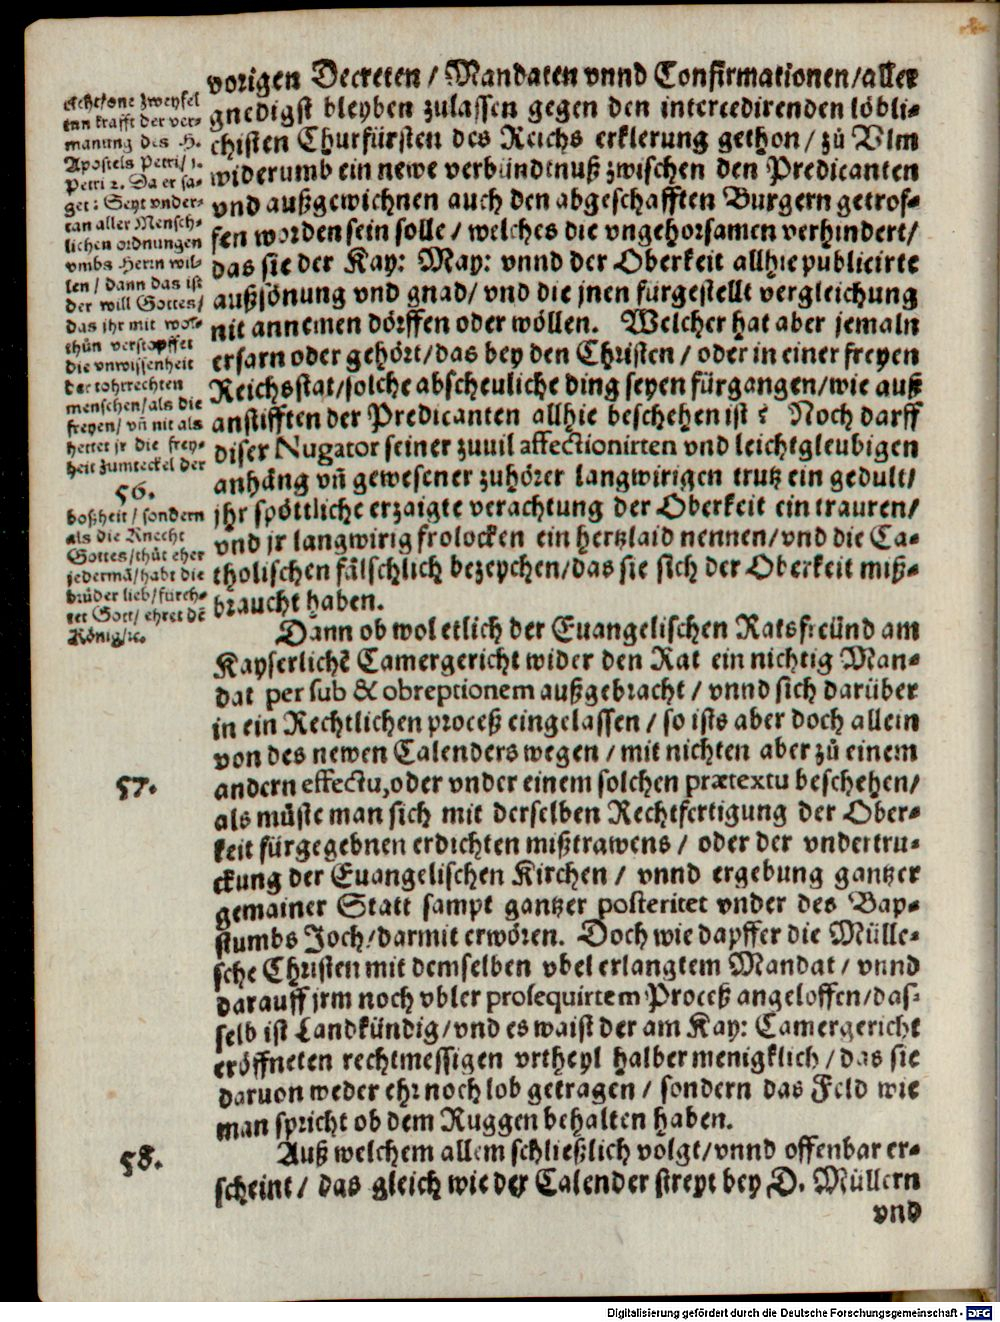 vorigen Decreten / Mandaten vnnd Confirmationen/aller
gnedigst bleyben zulassen gegen den intercedirenden löbli-
chisten Churfürsten des Reichs erklerung gethon / zů Vlm
widerumb ein newe verbündtnuß zwischen den Predicanten
vnd außgewichnen auch den abgeschafften Burgern getrof-
fen worden sein solle / welches die vngehorsamen verhindert/
das sie der Kay: May: vnnd der Oberkeit allhie publicirte
außsönung vnd gnad/ vnd die jnen fürgestellt vergleichung
nit annemen dörffen oder wöllen. Welcher hat aber jemaln
erfarn oder gehört/das bey den Christen / oder in einer freyen
Reichsstat/solche abscheuliche ding seyen fürgangen/wie auß
anstifften der Predicanten allhie beschehen ist ? Noch darff
diser Nugator seiner zuuil affectionirten vnd leichtgleubigen
anhäng vñ gewesener zuhörer langwirigen trutz ein gedult/
jhr spöttliche erzaigte verachtung der Oberkeit ein trauren/
vnd jr langwirig frolocken ein hertzlaid nennen/vnd die Ca-
tholischen fälschlich bezeychen/das sie sich der Oberkeit miß-
braucht haben.
Dann ob wol etlich der Euangelischen Ratsfreünd am
Kayserlichē Camergericht wider den Rat ein nichtig Man-
dat per sub & obreptionem außgebracht / vnnd sich darüber
in ein Rechtlichen proceß eingelassen / so ists aber doch allein
von des newen Calenders wegen / mit nichten aber zů einem
andern effectu,oder vnder einem solchen prætextu beschehen/
als müste man sich mit derselben Rechtfertigung der Ober-
keit fürgegebnen erdichten mißtrawens / oder der vndertru-
ckung der Euangelischen Kirchen / vnnd ergebung gantzer
gemainer Statt sampt gantzer posteritet vnder des Bap-
stumbs Joch/darmit erwören. Doch wie dapffer die Mülle-
sche Christen mit demselben vbel erlangtem Mandat / vnnd
darauff jrm noch vbler prosequirtem Proceß angeloffen/das-
selb ist Landkündig/vnd es waist der am Kay: Camergericht
eröffneten rechtmessigen vrtheyl halber menigklich / das sie
daruon weder ehr noch lob getragen / sondern das Feld wie
man spricht ob dem Ruggen behalten haben.
Auß welchem allem schließlich volgt/vnnd offenbar er-
scheint / das gleich wie der Calender streyt bey D. Müllern
vnd
echt/one zweyfel
inn krafft der ver-
manung des H.
Apostels Petri/ 1.
Petri 2. Da er sa-
get: Seyt vnder-
tan aller Mensch-
lichen ordnungen
vmbs Herrn wil-
len / dann das ist
der will Gottes/
das jhr mit wol-
thůn verstopffet
die vnwissenheit
der tohrrechten
menschen/als die
freyen/ vñ nit als
hettet jr die frey-
heit zumteckel der
56.
boßheit / sondern
als die Knecht
Gottes/thůt eher
jedermā/habt die
brüder lieb/fürch-
tet Gott/ ehret dē
König/ꝛc.
57.
58.
Digitalisierung gefördert durch die Deutsche Forschungsgemeinschaft - DFG